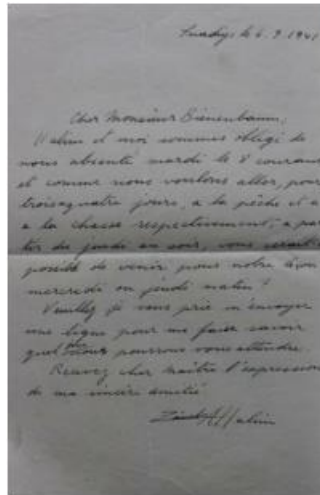 le 6. 9. 1941
Cher Monsieur Bienenbaum,
Halim et moi sommes obligé de
nous absenté mardi le 8 courant
et comme nous voulons aller, pour
trois, quatre jours, a la pêche et a
a la chasse respectivement, a par
ter du jeudi au soir, vous serait
possible de venir pour notre leçon
mercredi ou jeudi matin?
Veuillez je vous prie m'envoyer
une ligne pour me faire savoir
quel nous pourrons vous attendre.
Recevez cher maître l'expression
de ma sincère amitié
Halim